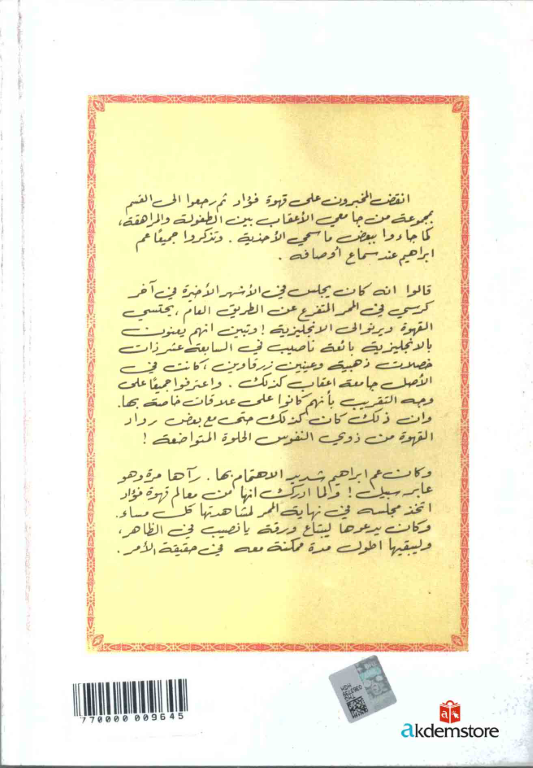 انقض المخبرون على قهوة فؤاد ثم رجعوا الى القسم
بمجموعة من جامعي الأعقاب بين الطفولة والمراهقة،
كما جاءوا ببعض ماسحي الأحذية . وتذكروا جميعًا عم
ابراهيم عند سماع أوصافه .
قالوا انه كان يجلس في الأشهر الأخيرة في آخر
كرسي في الممر المتفرع عن الطريق العام ، يحتسي
القهوة ويرنو الى الانجليزية ! وتبين انهم يعنون
بالانجليزية بائعة نصيب في السابعة عشر ذات
خصلات ذهبية وعينين زرقاوين ، كانت في
الأصل جامعة اعقاب كذلك . واعترفوا جميعًا على
وجه التقريب بأنهم كانوا على علاقات خاصة بها .
وان ذلك كان كذلك حتى مع بعض رواد
القهوة من ذوي النفوس الحلوة المتواضعة !
وكان عم ابراهيم شديد الاهتمام بها . رآها مرة وهو
عابر سبيل ! ولما ادرك انها من معالم قهوة فؤاد
اتخذ مجلسه في نهاية الممر لمشاهدتها كل مساء .
وكان يدعوها ليبتاع ورقة يانصيب في الظاهر ،
وليبقيها اطول مدة ممكنة معه في حقيقة الأمر .
770000 009645
akdemstore